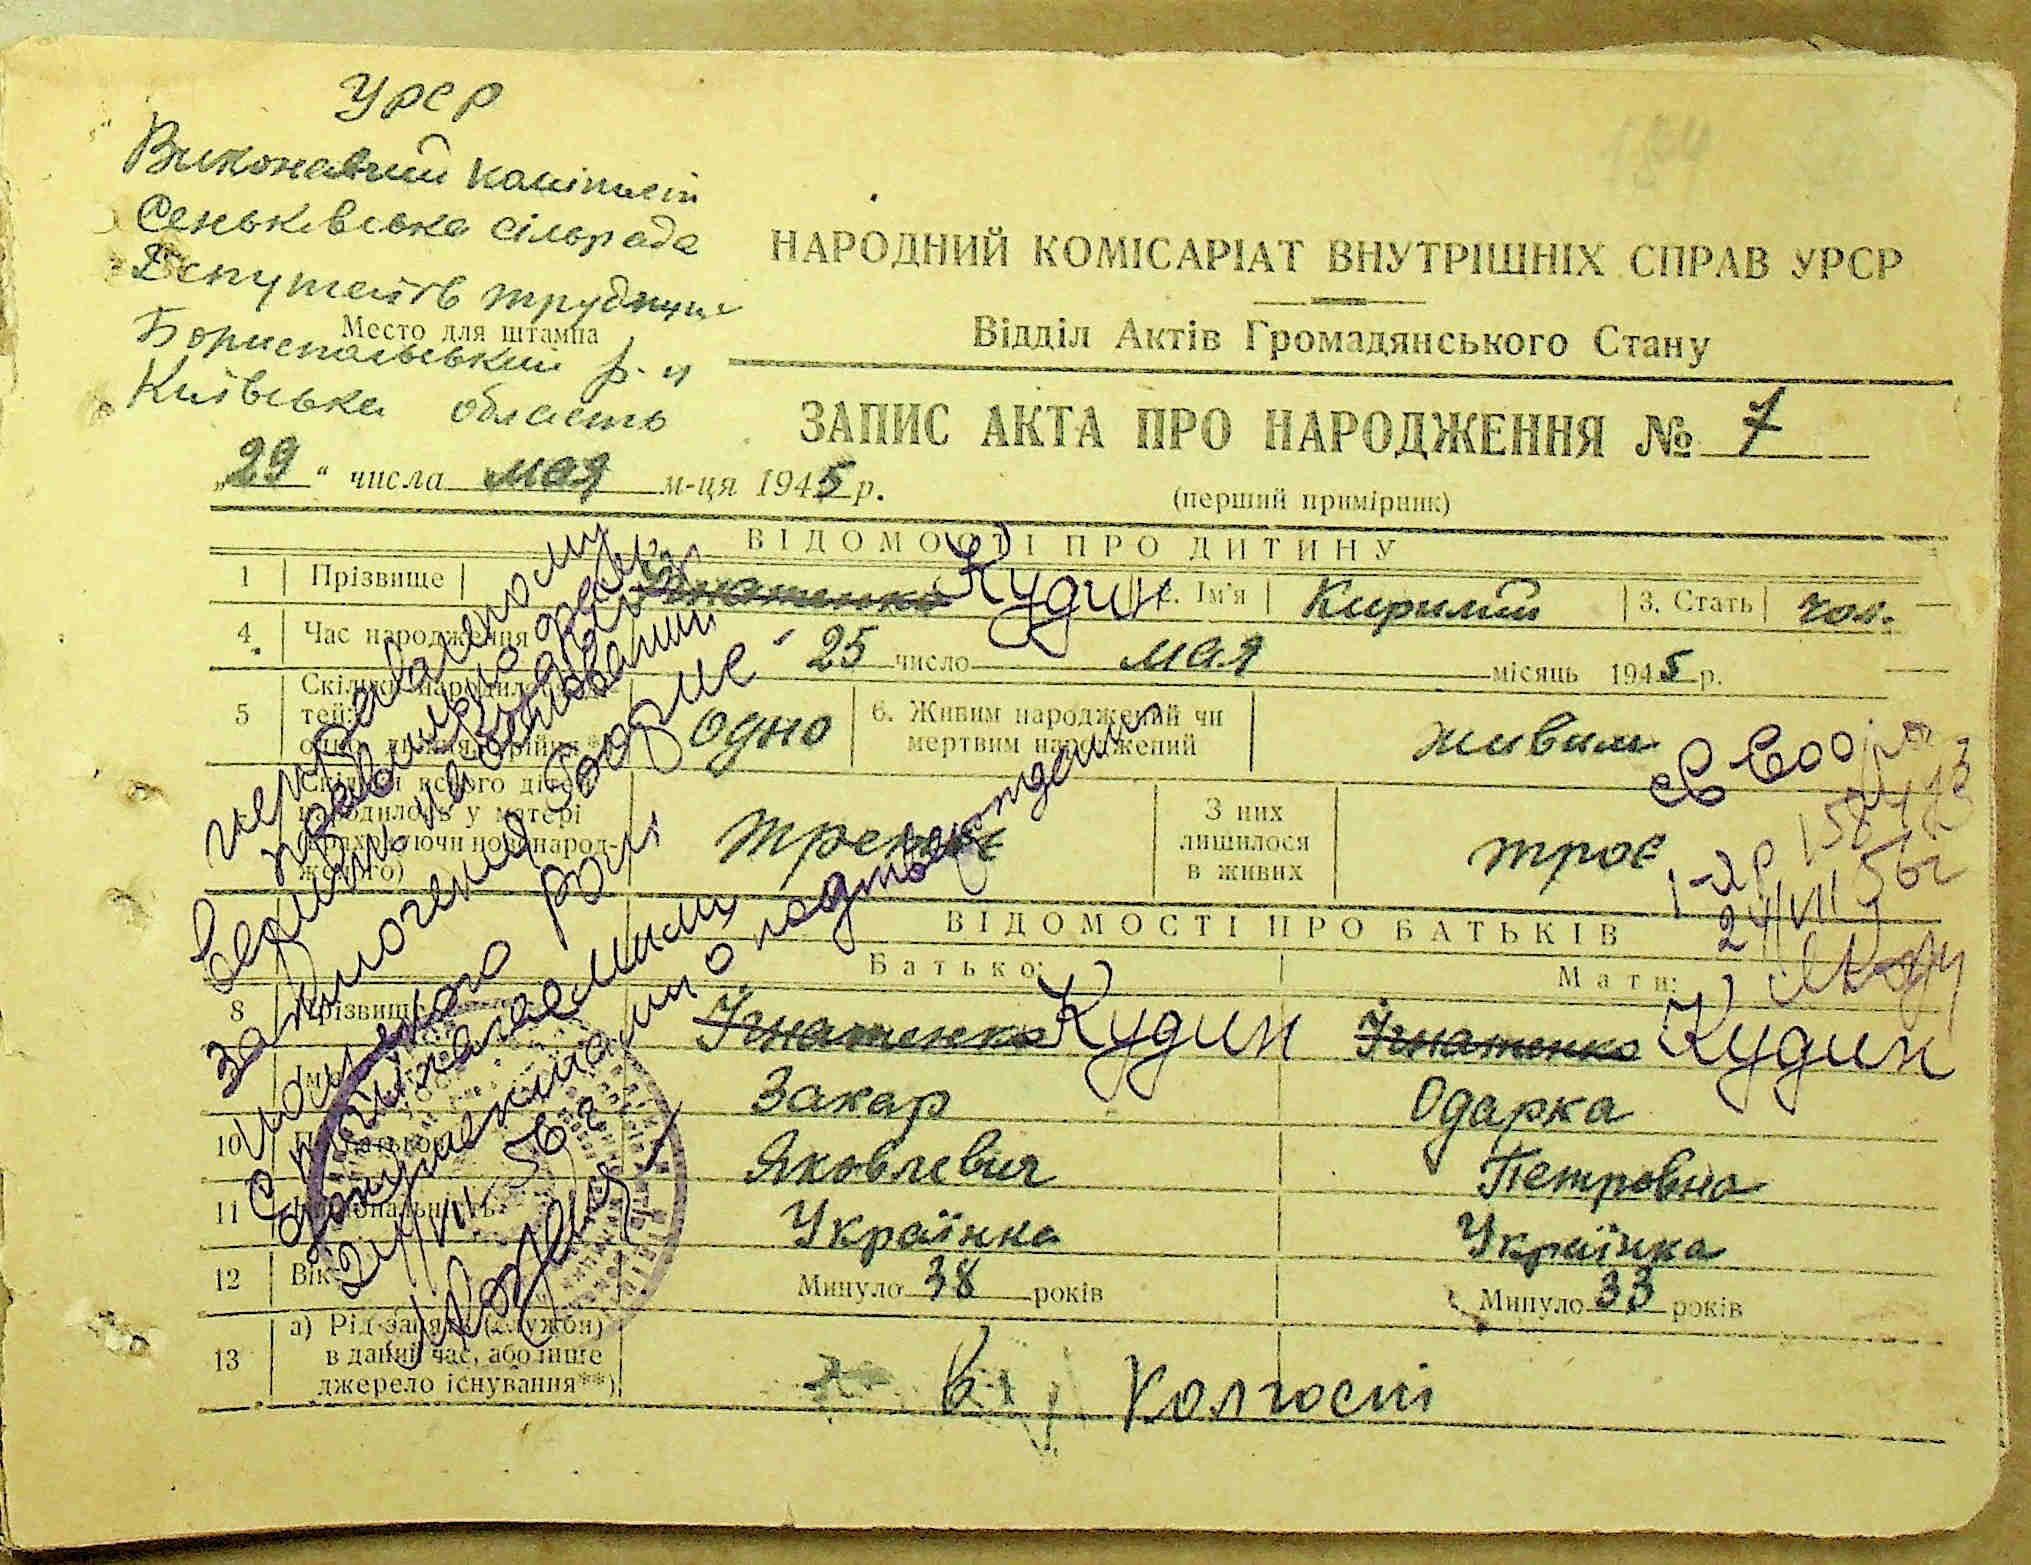 УРСР
Виконавчий комітет
Сеньківська сільрада
Депутатів трудящих
Место для штампа
Бориспольський р-н
Київська область
НАРОДНИЙ КОМІСАРІАТ ВНУТРІШНІХ СПРАВ УРСР
Відділ Актів Громадянського Стану
ЗАПИС АКТА ПРО НАРОДЖЕННЯ № 7
„29“ числа мая м-ця 1945 р.
(перший примірник)
ВІДОМОСТІ ПРО ДИТИНУ
1 Прізвище Ігнатенко Кудин 2. Ім'я Кирилий 3. Стать чол.
4 Час народження 25 число мая місяць 1945 р.
5 Скільки народилось дітей: одно 6. Живим народжений чи мертвим народжений живим
Скільки всього дітей народилось у матері (враховуючи новонародженого) третє З них лишилося в живих троє
ВІДОМОСТІ ПРО БАТЬКІВ
Батько: Мати:
8 Прізвище Ігнатенко Кудин Ігнатенко Кудин
Ім'я Закар Одарка
10 По батькові Яковлевич Петровна
11 Національність Українка Українка
12 Вік Минуло 38 років Минуло 33 років
13 а) Рід занять (служби) в даний час, або інше джерело існування**) В Колгоспі
исправленому
верить на основании
заключения
документами подтверждаю
24/VII 56 г.